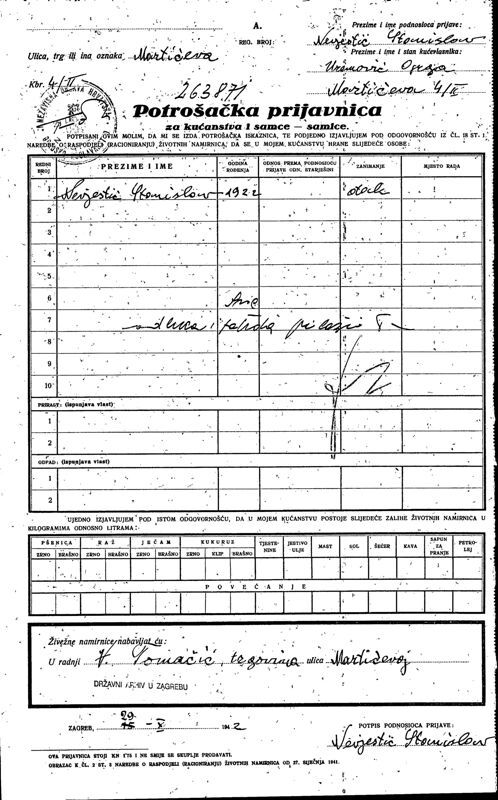 A.
REG. BROJ:
Prezime i ime podnosioca prijave:
Nevjestić Stanislav
Prezime i ime i stan kućevlasnika:
Martićeva 4/II
Ulica, trg ili ina oznaka Martićeva
Kbr. 4/II
263871
Potrošačka prijavnica
za kućanstva i samce — samice.
POTPISANI OVIM MOLIM, DA MI SE IZDA POTROŠAČKA ISKAZNICA, TE PRIJAVLJUJEM POD ODGOVORNOŠĆU IZ ČL. 18 ST. 1
NAREDBE O RASPODJELI (RACIONIRANJU) ŽIVOTNIH NAMIRNICA, DA SE U MOJEM KUĆANSTVU HRANE SLIJEDEĆE OSOBE:
REDNI BROJ PREZIME I IME GODINA ROĐENJA ODNOS PREMA PODNOSIOCU PRIJAVE ODN. STARJEŠINI ZANIMANJE MJESTO RADA
1 Nevjestić Stanislav 1922
2
3
4
5
6
7
8
9
10
PRIRAST: (ispunjava vlast)
1
2
OTPAD: (ispunjava vlast)
1
2
UJEDNO IZJAVLJUJEM POD ISTOM ODGOVORNOŠĆU, DA U MOJEM KUĆANSTVU POSTOJE SLIJEDEĆE ZALIHE ŽIVOTNIH NAMIRNICA U
KILOGRAMIMA ODNOSNO LITRAMA:
PŠENICA RAŽ JEČAM KUKURUZ TJESTENINE JESTIVO ULJE MAST SOL ŠEĆER KAVA SAPUN ZA PRANJE PETROLEJ
ZRNO BRAŠNO ZRNO BRAŠNO ZRNO BRAŠNO ZRNO KLIP BRAŠNO
POVEĆANJE
Živežne namirnice nabavljat ću:
U radnji V. Tomačić, trgovina ulica Martićevoj
DRŽAVNI ARHIV U ZAGREBU
29
ZAGREB, 15 — XI 1942
POTPIS PODNOSIOCA PRIJAVE:
Nevjestić Stanislav
OVA PRIJAVNICA STOJI KN 1'75 I NE SMIJE SE SKUPLJE PRODAVATI.
OBRAZAC K ČL. 2 ST. 3 NAREDBE O RASPODJELI (RACIONIRANJU) ŽIVOTNIH NAMIRNICA OD 27. SIJEČNJA 1941.